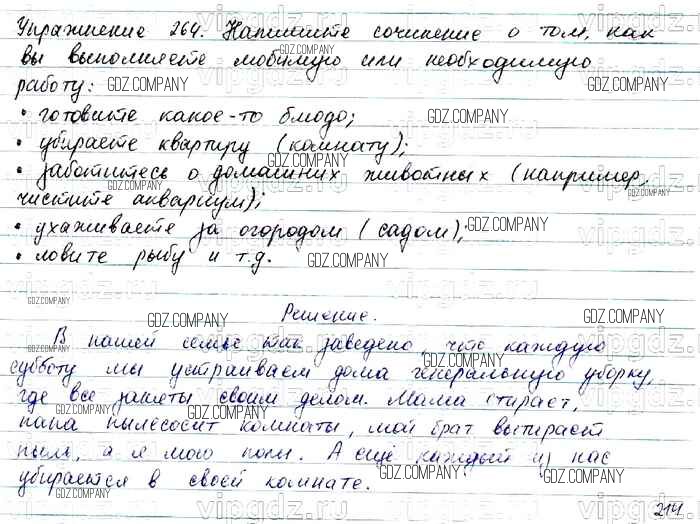 Упражнение 264. Напишите сочинение о том, как
вы выполняете любимую или необходимую
работу:
• готовите какое-то блюдо;
• убираете квартиру (комнату);
• заботитесь о домашних животных (например,
чистите аквариум);
• ухаживаете за огородом (садом);
• ловите рыбу и т.д.
Решение.
В нашей семье так заведено, что каждую
субботу мы устраиваем дома генеральную уборку,
где все заняты своим делом. Мама стирает,
папа пылесосит комнаты, мой брат вытирает
пыль, а я мою полы. А ещё каждый из нас
убирается в своей комнате.
214